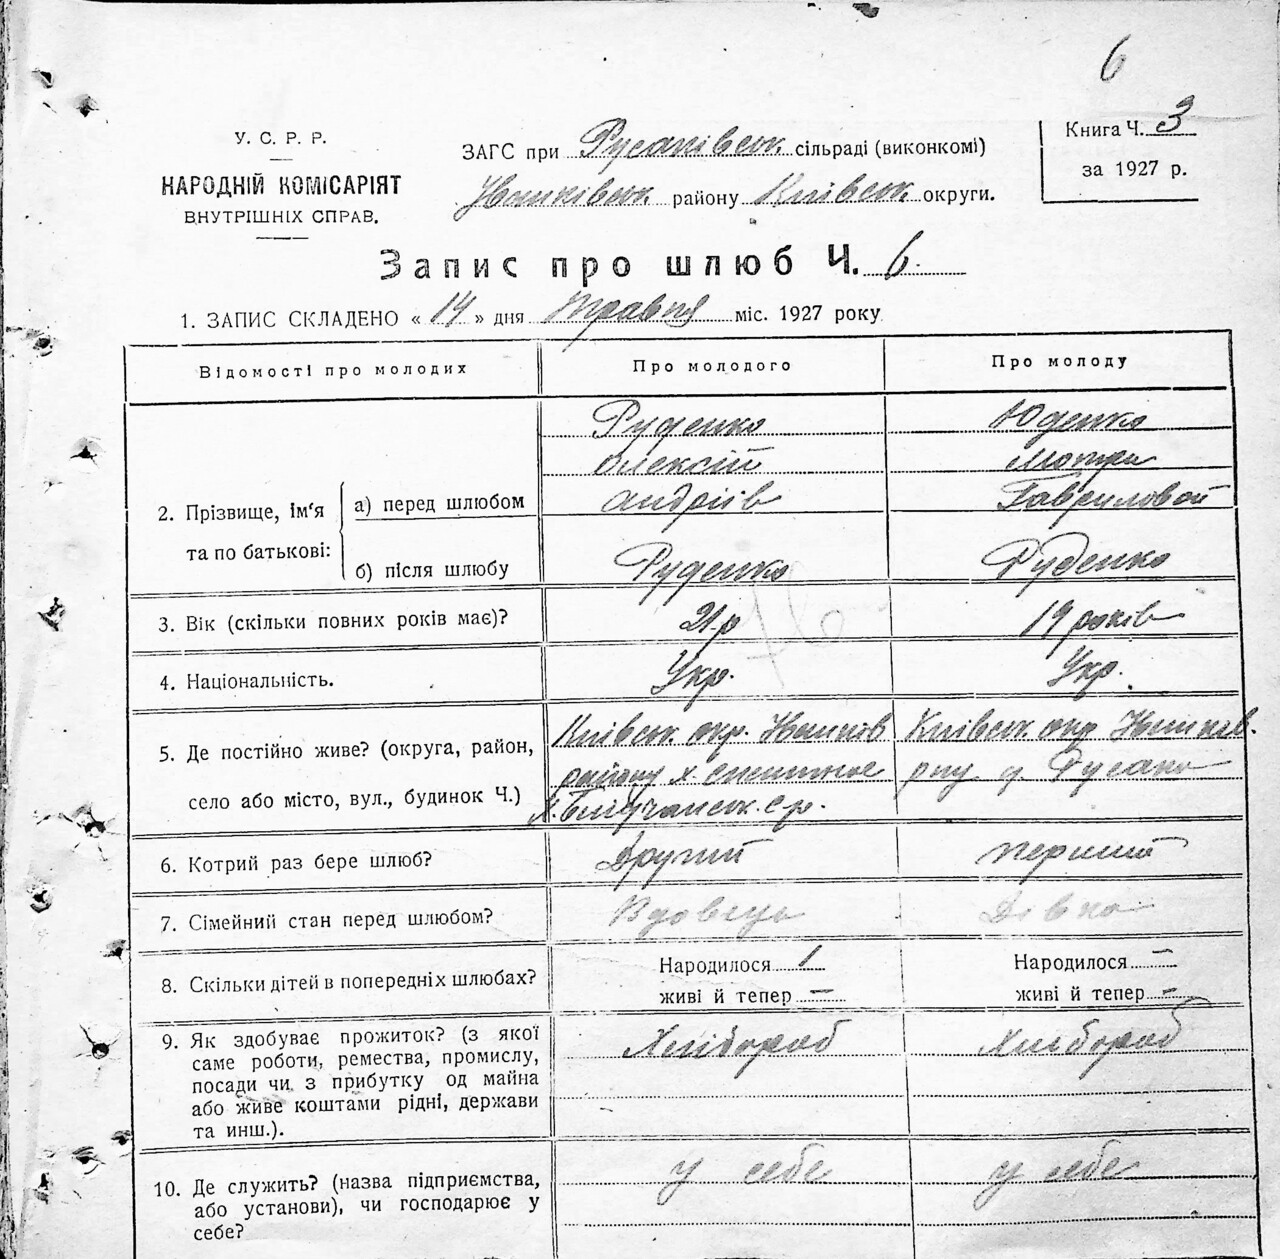 6
У. С. Р. Р.
НАРОДНІЙ КОМІСАРІЯТ
ВНУТРІШНІХ СПРАВ.
ЗАГС при Русанівськ сільраді (виконкомі)
району Київськ округи.
Книга Ч. 3
за 1927 р.
Запис про шлюб Ч. 6.
1. ЗАПИС СКЛАДЕНО « 14 » дня Травня міс. 1927 року
Відомості про молодих Про молодого Про молоду
2. Прізвище, ім‘я та по батькові:
а) перед шлюбом
Руденко Юденко
Олексій Мотря
Андріїв Гавриловой
б) після шлюбу Руденко Руденко
3. Вік (скільки повних років має)? 21 р 19 років
4. Національність. Укр. Укр.
5. Де постійно живе? (округа, район,
село або місто, вул., будинок Ч.)
Київськ окр.
району х.
с-р.
Київськ окр
рну д. Русано
6. Котрий раз бере шлюб? Другий перший
7. Сімейний стан перед шлюбом? Вдовець Дівка
8. Скільки дітей в попередніх шлюбах? Народилося 1 Народилося —
живі й тепер — живі й тепер —
9. Як здобуває прожиток? (з якої
саме роботи, ремества, промислу,
посади чи з прибутку од майна
або живе коштами рідні, держави
та инш.).
Хлібороб Хлібороб
10. Де служить? (назва підприємства,
або установи), чи господарює у
себе?
у себе у себе